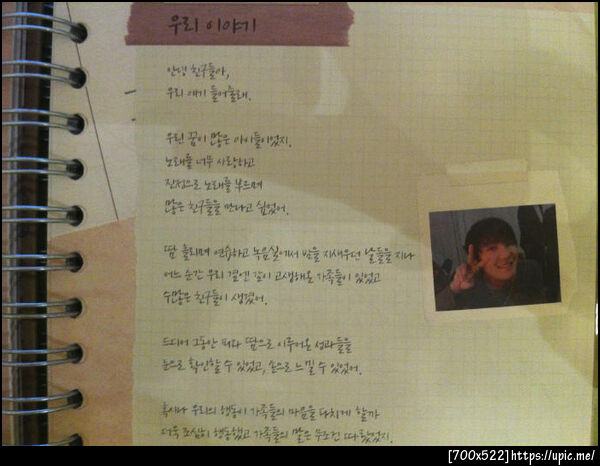 우리 이야기
안녕 친구들아,
우리 얘기 들어줄래.
우린 꿈이 많은 아이들이었지.
노래를 너무 사랑하고
진정으로 노래를 부르며
많은 친구들을 만나고 싶었어.
땀 흘리며 연습하고 녹음실에서 밤을 지새우던 날들을 지나
어느 순간 우리 곁엔 같이 고생해온 가족들이 있었고
수많은 친구들이 생겼어.
드디어 그동안 피와 땀으로 이루어온 성과들을
눈으로 확인할 수 있었고, 손으로 느낄 수 있었어.
혹시나 우리의 행동이 가족들의 마음을 다치게 할까
더욱 조심히 행동했고 가족들의 말은 무조건 따라왔었지.
[700x522]https://upic.me/